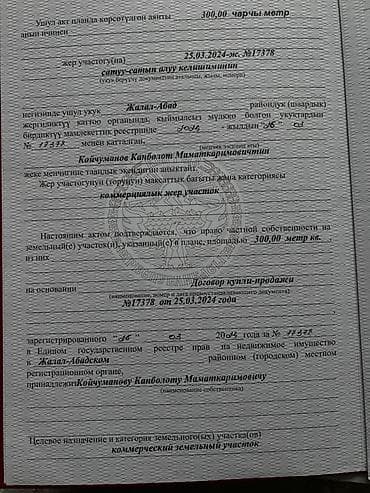 Ушул акт планда көрсөтүлгөн аянты 300,00 чарчы метр
анын ичинен
жер участогу(на) 25.03.2024-ж. №17378
сатуу-сатып алуу келишиминин
негизинде ушул укук Жалал-Абад райондук (шаардык)
жергиликтүү каттоо органында, кыймылсыз мүлккө болгон укуктардын
бирдиктүү мамлекеттик реестринде 2024 -жылдын "26" 03
№ 17378 менен катталган,
Койчуманов Канболот Маматкаримовичтин
жеке менчигине таандык экендигин аныктайт.
Жер участогунун (торунун) максаттык багыты жана категориясы
коммерциялык жер участок
Настоящим актом подтверждается, что право частной собственности на
земельный(е) участок(и), указанный(е) в плане, площадью 300,00 метр кв. ,
из них
на основании Договор купли-продажи
(наименование, номер и дата правоустанавливающего документа)
№17378 от 25.03.2024 года
зарегистрированного "26" 03 2024 года за № 17378
в Едином государственном реестре прав на недвижимое имущество
в Жалал-Абадском районном (городском) местном
регистрационном органе,
принадлежит Койчуманову Канболоту Маматкаримовичу
(наименование собственника)
Целевое назначение и категория земельного(ых) участка(ов)
коммерческий земельный участок